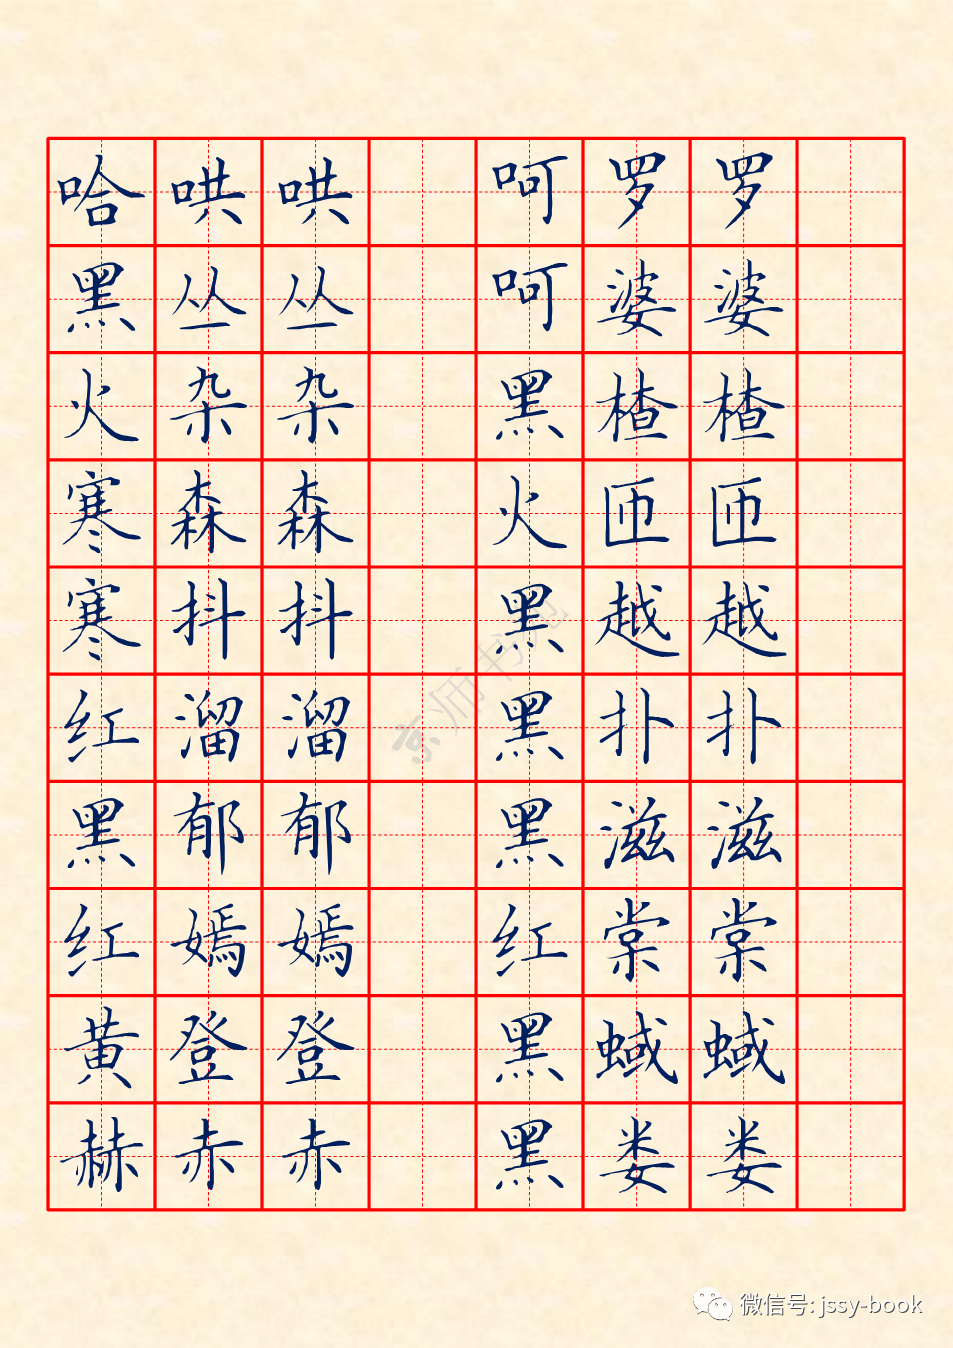 哈哄哄 呵罗罗
黑丛丛 呵婆婆
火杂杂 黑楂楂
寒森森 火匝匝
寒抖抖 黑越越
红溜溜 黑扑扑
黑郁郁 黑滋滋
红嫣嫣 红棠棠
黄登登 黑蜮蜮
赫赤赤 黑娄娄
京师书苑
微信号: jssy-book